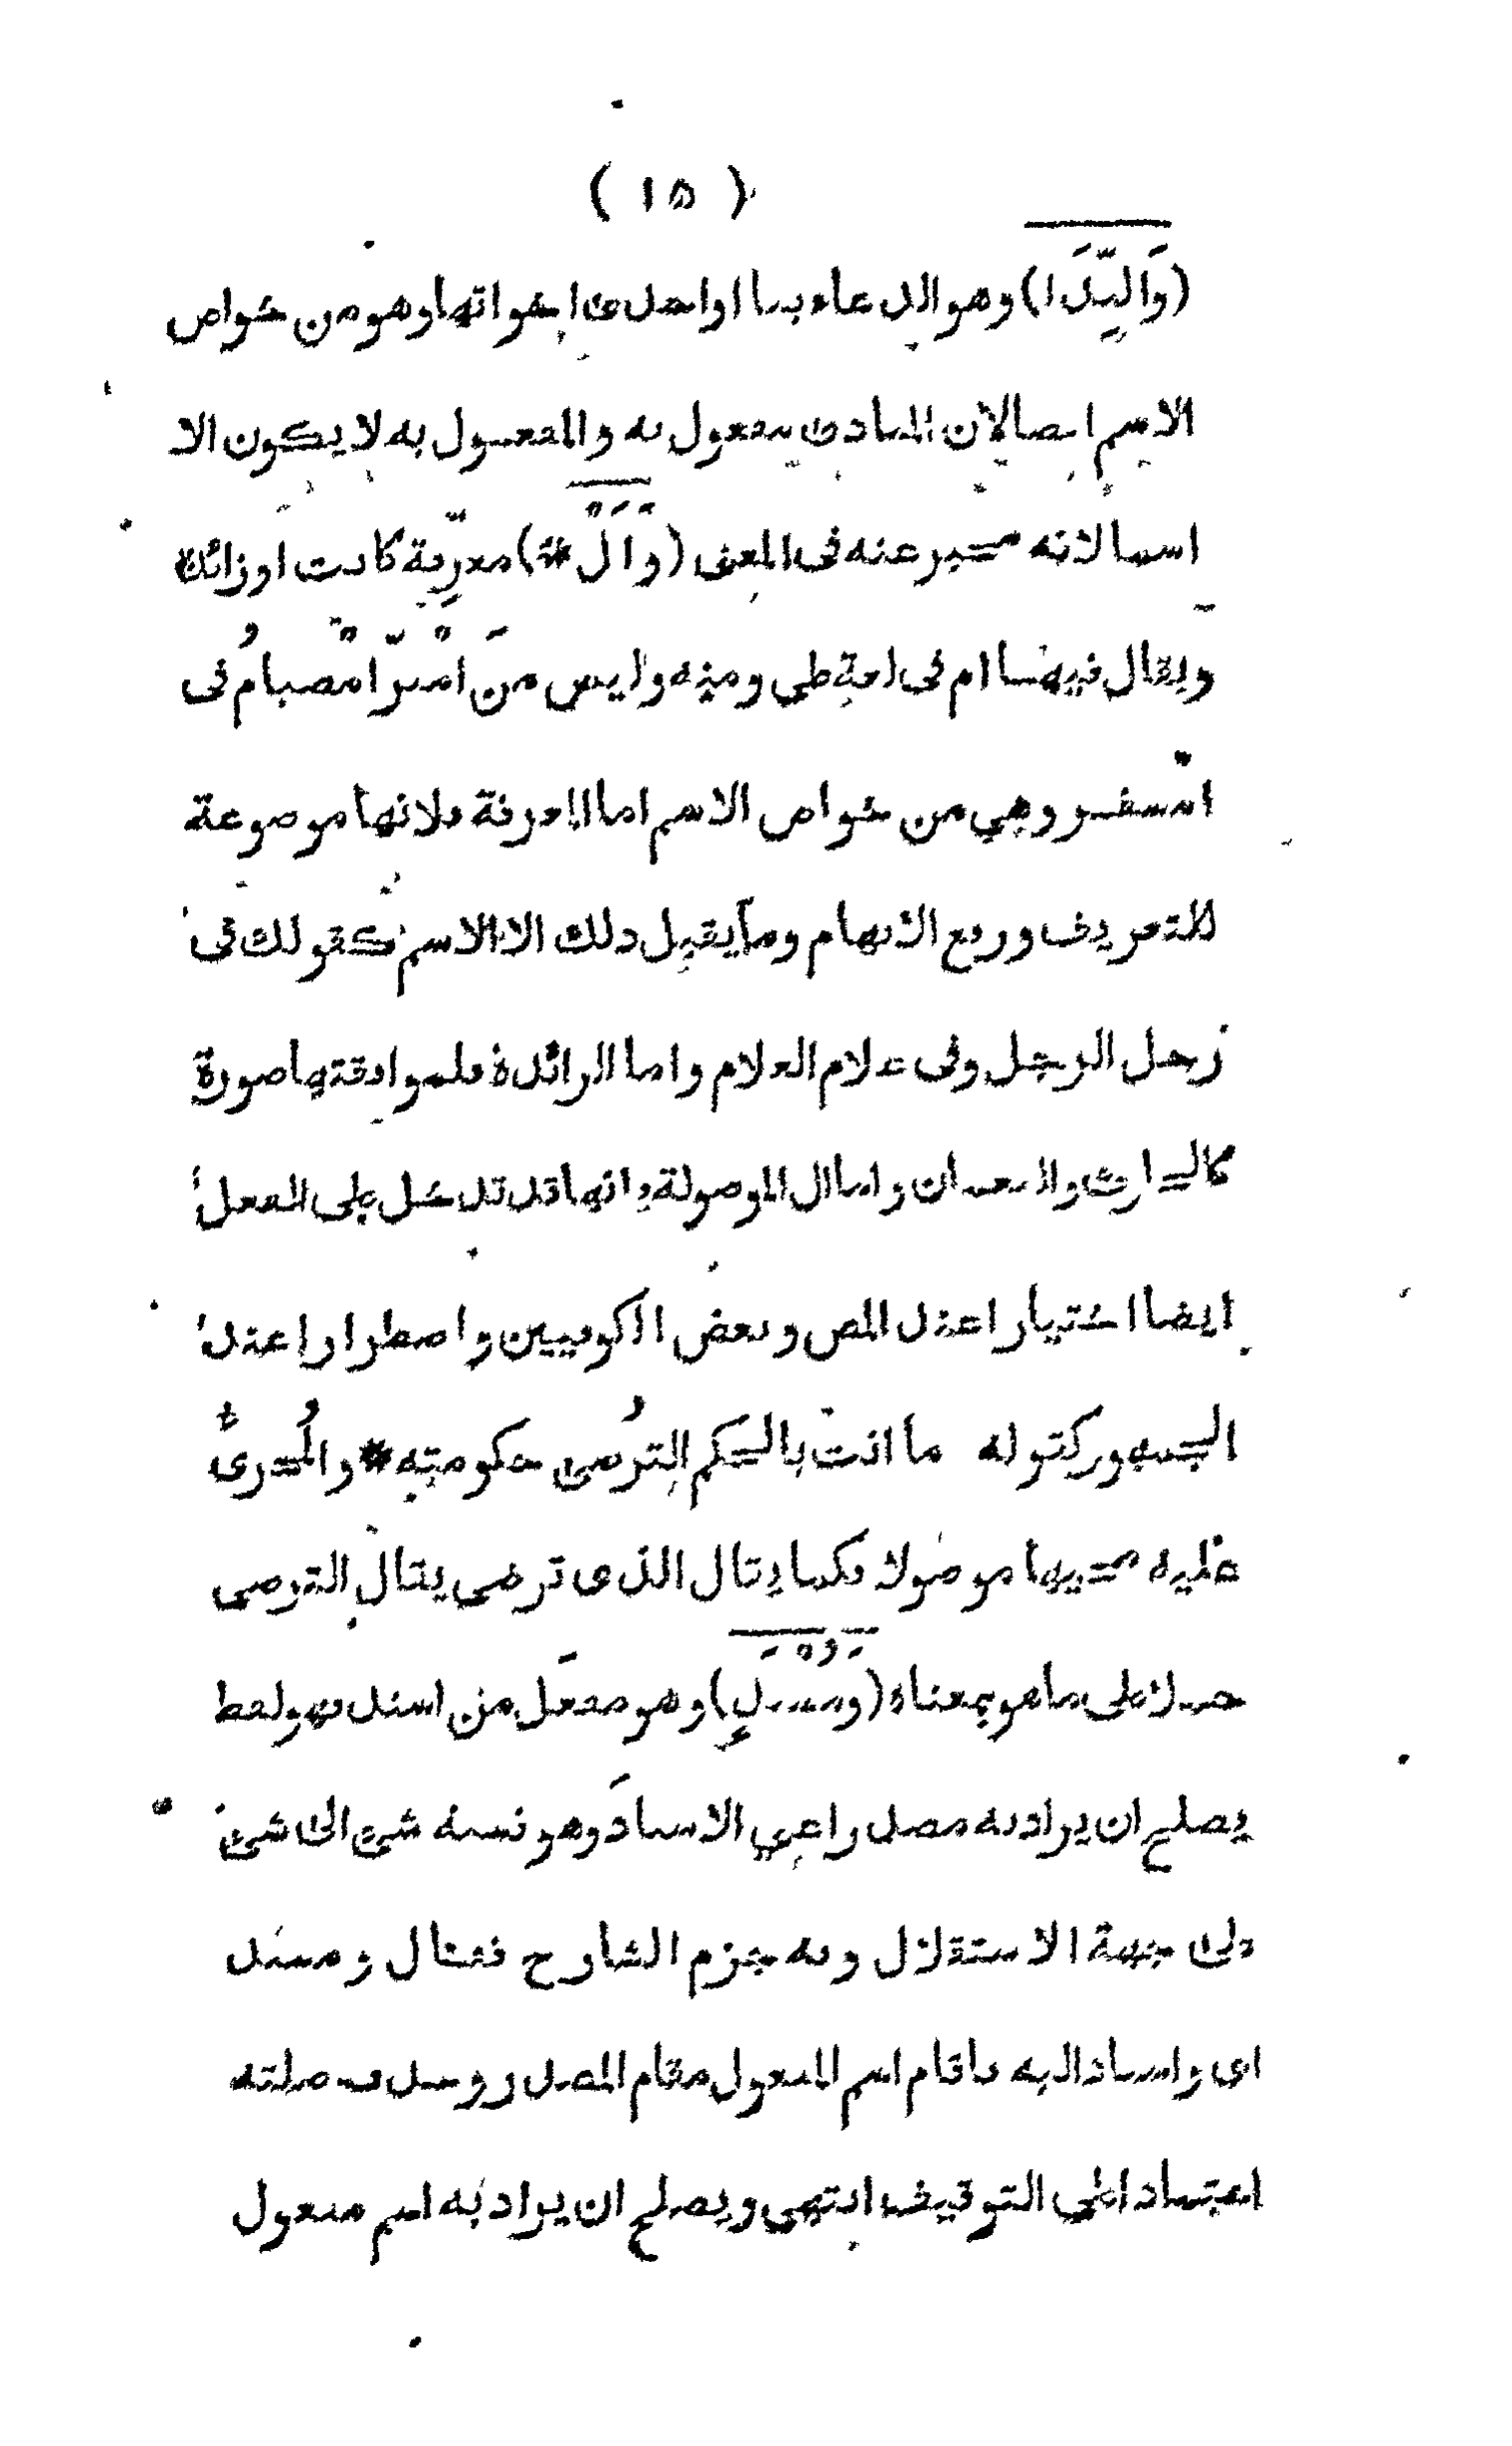 ( ١٥ )
(وَالنِّدَا) وهو الدعاء بيا او احدى اخواتها وهو من خواص
الاسم ايضا لان المنادى مفعول به والمفعول به لا يكون الا
اسما لانه مخبر عنه فى المعنى (وَاَلْ *) معرِّفة كانت او زائدة
ويقال فيها ام فى لغة طي ومنه وليس مِنَ امْبِرِّ امْصيامُ فى
امْسفر وهي من خواص الاسم اما المعرفة فلانها موضوعة
للتعريف ورفع الابهام وما يقبل ذلك الا الاسم كقولك فى
رجل الرجل وفى غلام الغلام واما الزائدة فلموافقتها صورة
كالحارث والنعمان واما ال الموصولة فانها قد تدخل على الفعل
ايضا اختيارا عند المص وبعض الكوفيين واضطرارا عند
الجمهور كقوله ما انت بالحكم التُرضى حكومته * والمُجرىُّ
عليه مجيها موصولا فكما يقال الذى ترضى يقال الترضى
حملا على ما هو بمعناه (وَمُسْنَدٍ) وهو مفعَل من اسند فهو لفظ
يصلح ان يراد به مصدر اعني الاسناد وهو نسبة شئ الى شئ
على جهة الاستقلال وبه جزم الشارح فقال ومسند
اى واسناد اليه فاقام اسم المفعول مقام المصدر وحذف صلته
اعتمادا على التوقيف انتهى ويصلح ان يراد به اسم مفعول